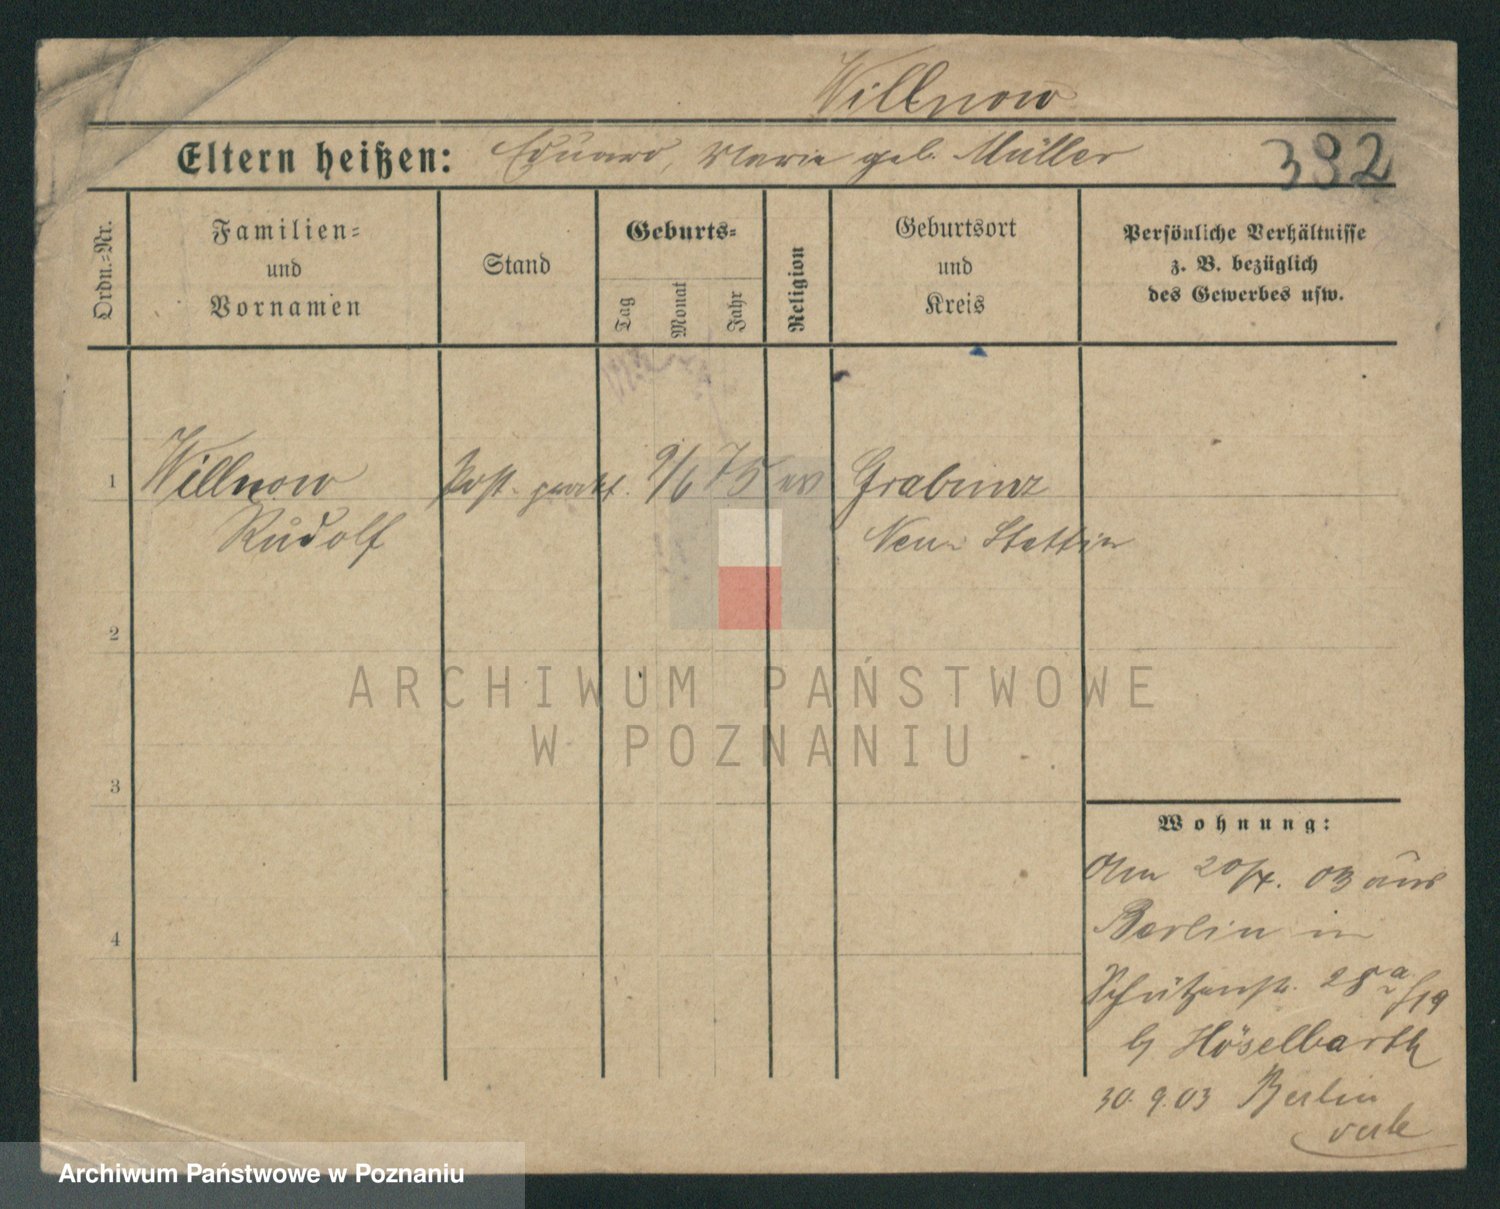 Willnow
Eltern heißen: Eduard, Marie geb. Müller
382
Ordn.-Nr.
Familien-
und
Vornamen
Stand
Geburts-
Tag
Monat
Jahr
Religion
Geburtsort
und
Kreis
Persönliche Verhältnisse
z. B. bezüglich
des Gewerbes usw.
1 Willnow Post- 9/6 75 ev Grabunz
Rudolf Neu- Stettin
2
3
4
ARCHIWUM PAŃSTWOWE
W POZNANIU
Wohnung:
Am 20/4. 03 aus
Berlin in
Schützenstr. 28a /19
b/ Höselbarth
30. 9. 03 Berlin
Archiwum Państwowe w Poznaniu